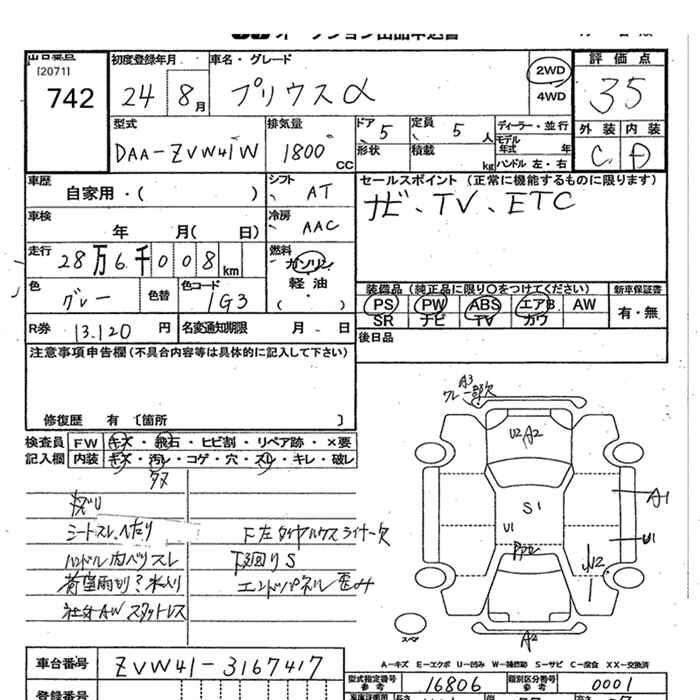 オークション出品申込書
出品番号
[2071]
742
初度登録年月
24 8月
車名・グレード
プリウスα
2WD
4WD
評価点
35
外装 内装
C D
型式
DAA-ZVW41W
排気量
1800 CC
ドア 5
形状
定員 5 人
積載 kg
ディーラー・並行
モデル年式 年
ハンドル 左・右
車歴
自家用・( )
シフト AT
セールスポイント (正常に機能するものに限ります)
ナビ、TV、ETC
車検
年 月( 日)
冷房 AAC
走行
28万6千008km
燃料
ガソリン
軽油
・( )
色
グレー
色替
色コード
1G3
装備品 (純正品に限り○をつけてください)
PS PW ABS エアB AW
SR ナビ TV カワ
新車保証書
有・無
R券 13.120 円
名変通知期限 月 日
後日品
注意事項申告欄(不具合内容等は具体的に記入して下さい)
修復歴 有 〔箇所 〕
検査員 FW キズ・飛石・ヒビ割・リペア跡・×要
記入欄 内装 キズ・汚レ・コゲ・穴・スレ・キレ・破レ
シートスレ、ヘタリ
ハンドル内ハリスレ
社外AW スタットレス
F左タイヤハウスライナー欠
下廻りS
エンドパネル歪み
A3
グレー一部欠
U2 A2
S1
U1
A1
U1
A2
スペア
A-キズ E-エクボ U-凹み W-補修跡 S-サビ C-腐食 XX-交換済
車台番号 ZVW41-3167417
型式指定番号 参考 16806
類別区分番号 参考 0001
登録番号